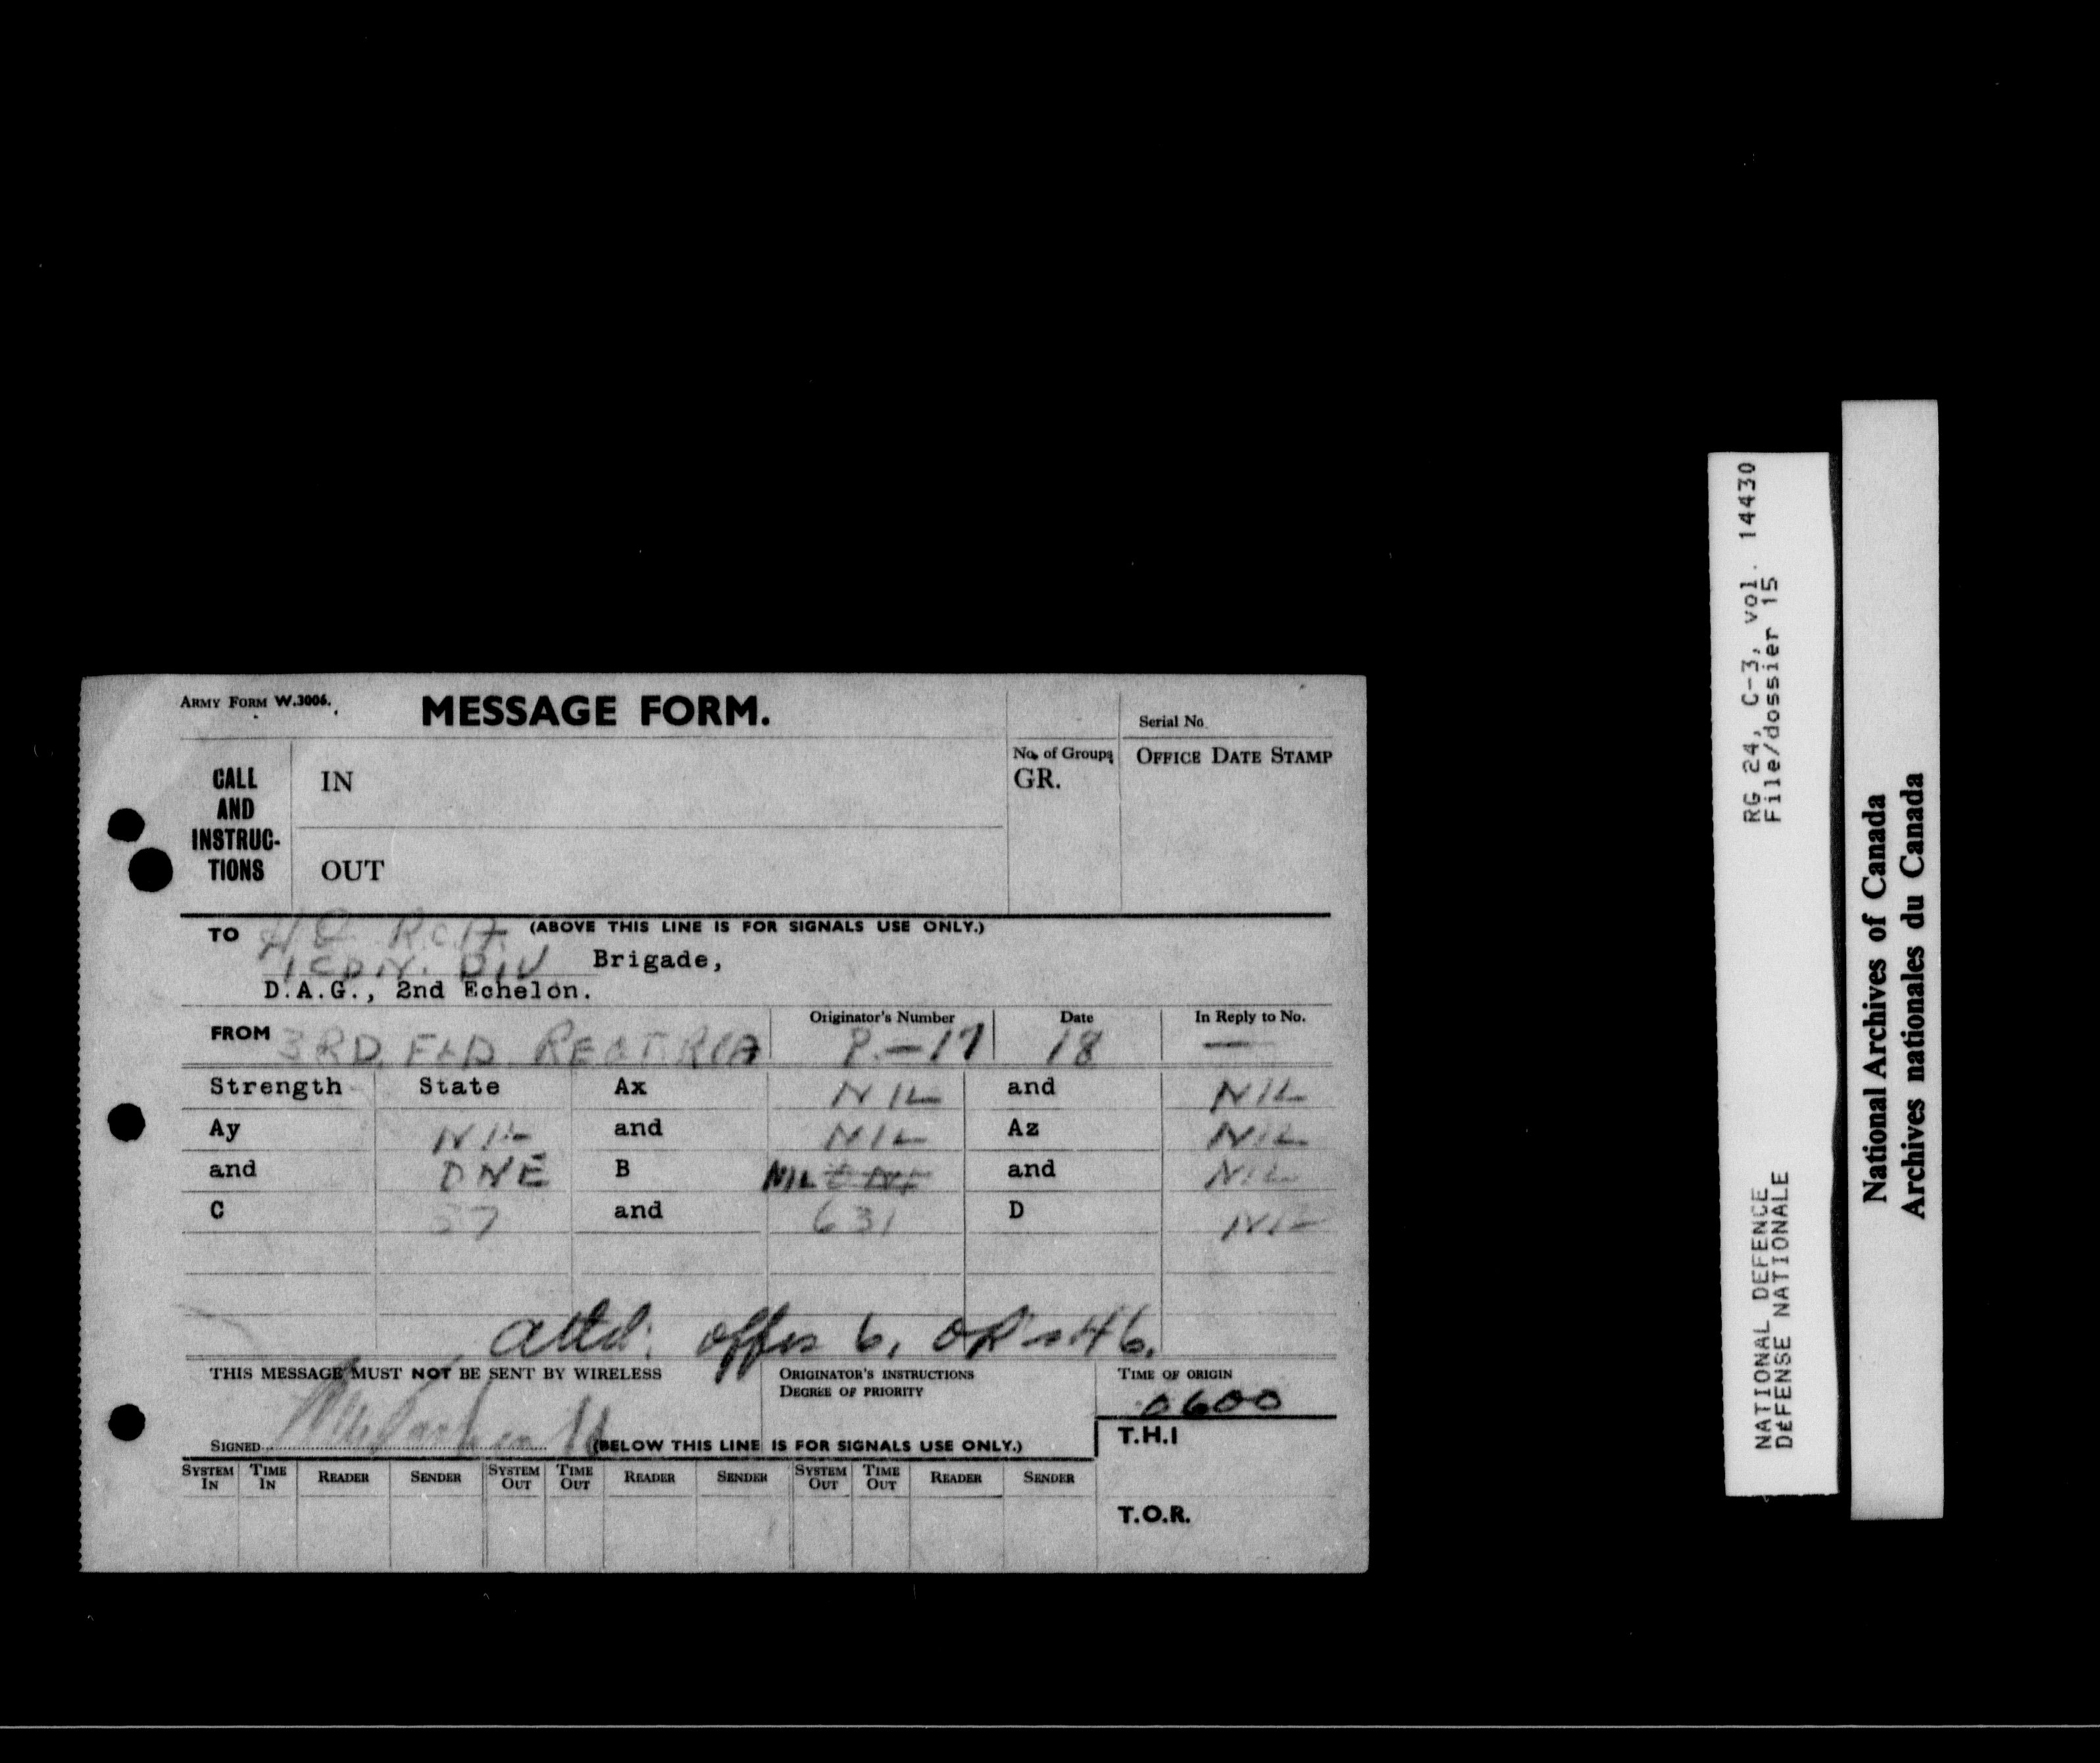 ARMY FORM W.3006.
MESSAGE FORM.
Serial No.
CALL AND INSTRUC-TIONS
IN
OUT
No. of Groups
GR.
OFFICE DATE STAMP
(ABOVE THIS LINE IS FOR SIGNALS USE ONLY.)
TO HQ RCA
1 CDN. DIV Brigade,
D.A.G., 2nd Echelon.
FROM 3RD. FLD REGT RCA
Originator's Number P.-17
Date 18
In Reply to No. —
Strength State Ax NIL and NIL
Ay NIL and NIL Az NIL
and ONE B NIL and NIL
C 37 and 631 D NIL
attd: offrs 6, OR's 46.
THIS MESSAGE MUST NOT BE SENT BY WIRELESS
ORIGINATOR'S INSTRUCTIONS
DEGREE OF PRIORITY
TIME OF ORIGIN
0600
SIGNED
(BELOW THIS LINE IS FOR SIGNALS USE ONLY.)
T.H.I
SYSTEM IN TIME IN READER SENDER SYSTEM OUT TIME OUT READER SENDER SYSTEM OUT TIME OUT READER SENDER
T.O.R.
NATIONAL DEFENCE RG 24, C-3, vol. 14430
DÉFENSE NATIONALE File/dossier 15
National Archives of Canada
Archives nationales du Canada